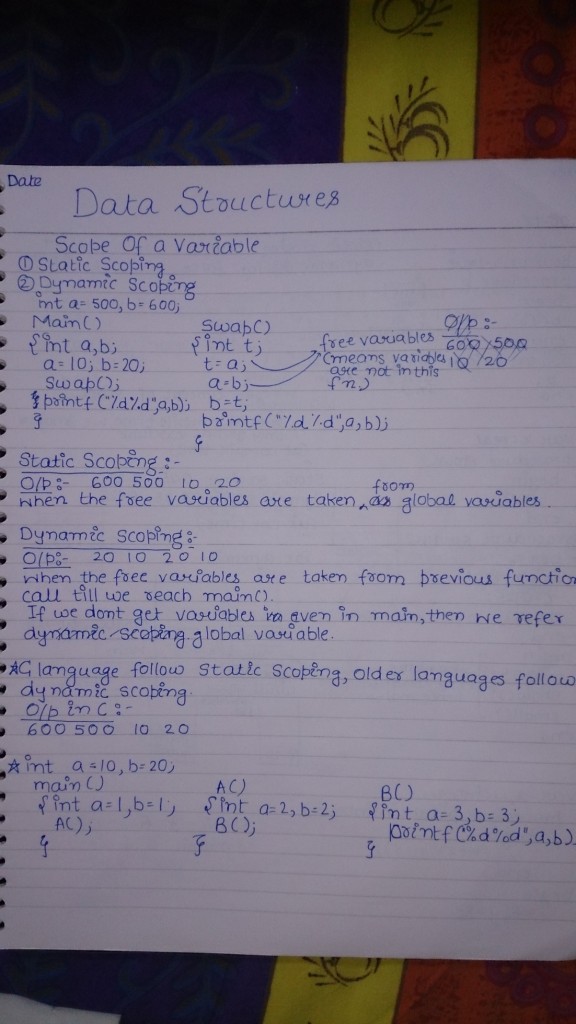 Date
Data Structures
Scope Of a Variable
① Static Scoping
② Dynamic Scoping
int a= 500, b= 600;
Main()
{int a,b;
a=10; b=20;
Swap();
printf("%d%d",a,b);
}
Swap()
{int t;
t=a;
a=b;
b=t;
printf("%d%d",a,b);
}
free variables
(means variables
are not in this
fn)
O/p:-
600 500
10 20
Static Scoping:-
O/P:- 600 500 10 20
When the free variables are taken from global variables.
Dynamic Scoping:-
O/P:- 20 10 20 10
When the free variables are taken from previous function
call till we reach main().
If we dont get variables even in main, then we refer
dynamic scoping global variable.
☆C language follow Static Scoping, older languages follow
dynamic scoping
O/p in C:-
600 500 10 20
☆int a=10, b=20;
main()
{int a=1,b=1;
A();
}
A()
{int a=2,b=2;
B();
}
B()
{int a=3,b=3;
printf(%d%d",a,b)
}